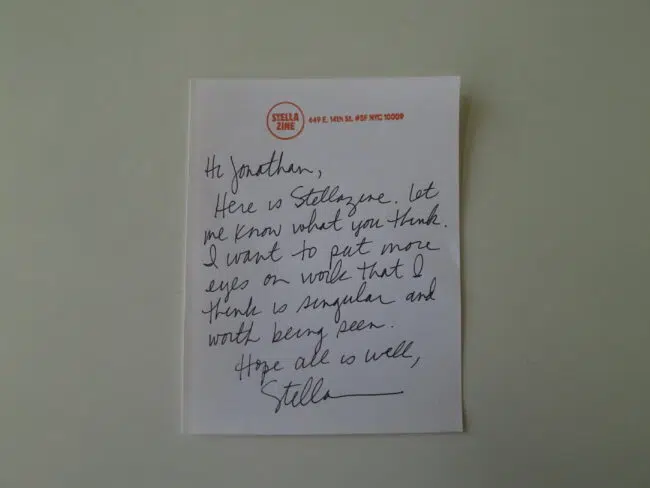 STELLA
ZINE
649 E. 14th St. #5F NYC 10009
Hi Jonathan,
Here is Stellazine. Let
me know what you think.
I want to put more
eyes on work that I
think is singular and
worth being seen.
Hope all is well,
Stella